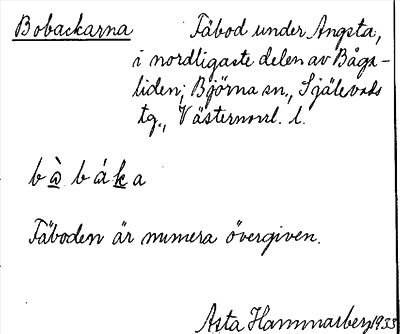 Bobackarna Fäbod under Ångsta,
i nordligaste delen av Båga-
liden; Björna sn., Själevads
tg., Västernorrl. l.
b ò b á k a
Fäboden är numera övergiven.
Asta Hammarberg 1933